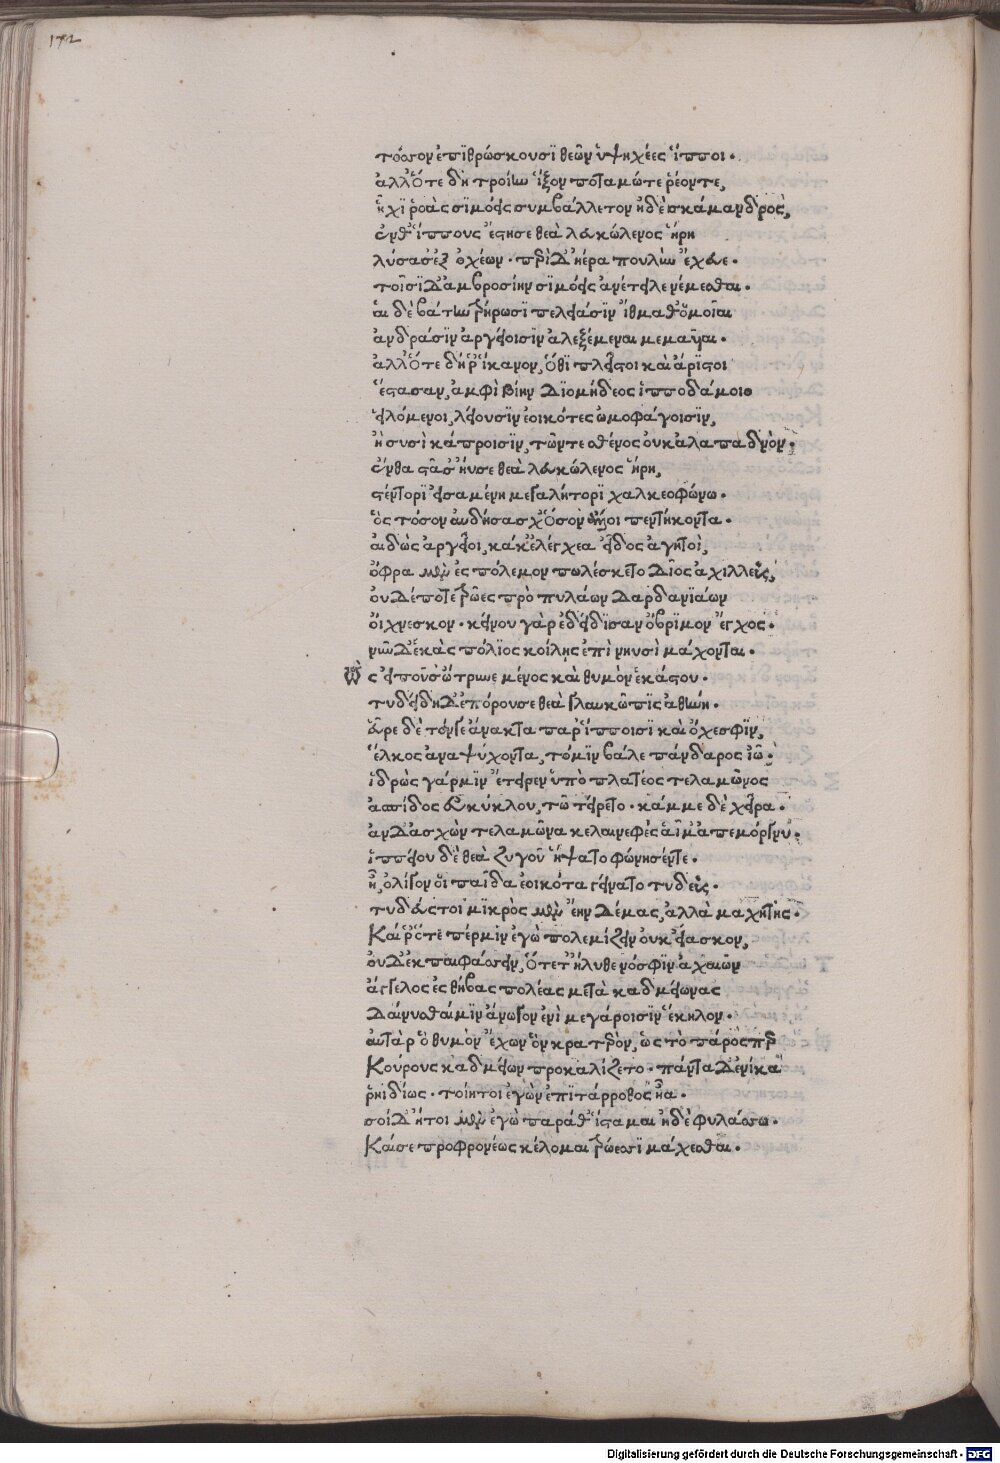 172
τόσσον ἐπϊθρώσκουσϊ θεῶν ὑψηχέες ἵπποι·
ἀλλ' ὅτε δὴ τροίην ἷξον ποταμώ τε ῥέοντε,
ἧχϊ ῥοὰς σϊμόεις συμβάλλετον ἠδὲ σκάμανδρος,
ἔνθ' ἵππους ἔστησε θεὰ λευκώλενος ἥρη
λύσασ' ἐξ ὀχέων· περὶ δ' ἠέρα πουλὺν ἔχευε·
τοῖσϊ δ' ἀμβροσίην σϊμόεις ἀνέτειλε νέμεσθαι·
αἱ δὲ βάτην τρήρωσϊ πελειάσϊν ἴθμαθ' ὅμοῖαι
ἀνδράσϊν ἀργείοισϊν ἀλεξέμεναι μεμαυῖαι·
ἀλλ' ὅτε δή ῥ' ἵκανον, ὅθϊ πλεῖστοι καὶ ἄρϊστοι
ἕστασαν, ἀμφὶ βίην Διομήδεος ἱπποδάμοιο
εἰλόμενοι, λείουσϊν ἐοικότες ὠμοφάγοισϊν,
ἢ συσὶ κάπροισϊν, τῶν τε σθένος οὐκ ἀλαπαδνὸν·
ἔνθα στᾶσ' ἤυσε θεὰ λευκώλενος ἥρη,
στέντορϊ εἰσαμένη μεγαλήτορϊ χαλκεοφώνω·
ὃς τόσον αὐδήσασχ' ὅσον ἄλλοι πεντήκοντα·
αἰδὼς ἀργεῖοι, κάκ' ἐλέγχεα εἶδος ἀγητοὶ,
ὄφρα μὲν ἐς πόλεμον πωλέσκετο δῖος ἀχιλλεὺς,
οὐδέποτε τρῶες πρὸ πυλάων Δαρδανιάων
οἴχνεσκον· κείνου γὰρ ἐδείδϊσαν ὄβρϊμον ἔγχος·
νῦν δ' ἑκὰς πόλϊος κοίλης ἐπὶ νηυσὶ μάχονται·
Ὣς εἰποῦσ' ὤτρυνε μένος καὶ θυμὸν ἑκάστου·
τυδείδη δ' ἐπόρουσε θεὰ γλαυκῶπϊς ἀθήνη·
εὗρε δὲ τόνγε ἄνακτα παρ' ἵπποισϊ καὶ ὄχεσφϊν,
ἕλκος ἀναψύχοντα, τό μϊν βάλε πάνδαρος ἰῶ·
ἱδρὼς γάρ μϊν ἔτειρεν ὑπὸ πλατέος τελαμῶνος
ἀσπίδος εὐκύκλου, τῶ τείρετο· κάμμε δὲ χεῖρα·
ἀν δ' ἀσχὼν τελαμῶνα κελαινεφὲς αἷμ' ἀπεμόργνυ·
ἱππείου δὲ θεὰ ζυγοῦ ἥψατο φώνησέν τε·
ἦ ὀλίγον οἱ παῖδα ἐοικότα γείνατο τυδεὺς·
τυδεύς τοι μϊκρὸς μὲν ἔην Δέμας, ἀλλὰ μαχητής·
Καί ῥ' ὅτε πέρ μιν ἐγὼ πολεμίζειν οὐκ εἴασκον,
οὐδ' ἐκπαιφάσσειν, ὅτε τ' ἤλυθε νόσφϊν ἀχαιῶν
ἄγγελος ἐς θήβας πολέας μετὰ καδμείωνας
Δαίνυσθαί μϊν ἄνωγον ἐνὶ μεγάροισϊν ἕκηλον·
αὐτὰρ ὃ θυμὸν ἔχων ὃν κρατερὸν, ὡς τὸ πάρος περ
Κούρους καδμείων προκαλίζετο· πάντα δ' ἐνίκα
ῥηϊδίως· τοίη τοι ἐγὼν ἐπϊτάρροθος ἦα·
σοὶ δ' ἤτοι μὲν ἐγὼ παράθ' ἵσταμαι ἠδὲ φυλάσσω·
Καί σε προφρονέως κέλομαι τρώεσσϊ μάχεσθαι·
Digitalisierung gefördert durch die Deutsche Forschungsgemeinschaft - DFG